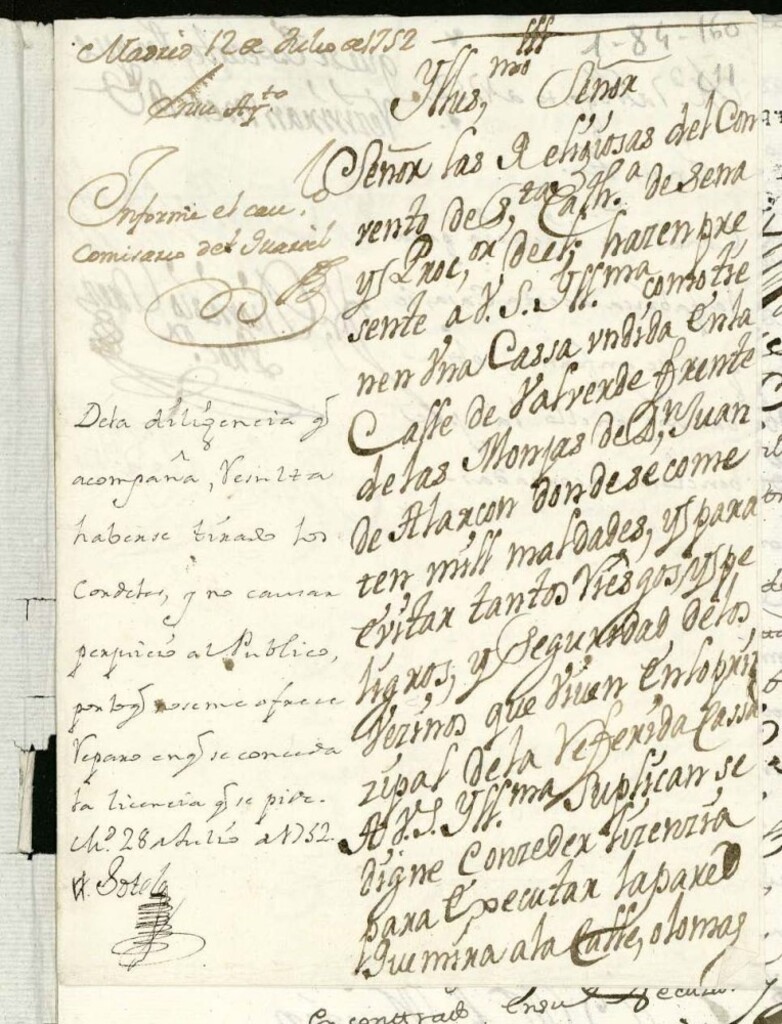 Madrid 12 de Julio de 1752
En su Ay.to
Informe el cav.o
Comisario del Quartel
Dela diligencia q
acompaña, Resulta
haberse tirado los
Cordeles, y no causar
perjuicio al Publico,
por lo q no se me ofrece
Reparo en q se conceda
la licencia q se pide.
M.d 28 de Julio de 1752.
Sotelo
1-84-160
Yllus,mo Señor
Señor las Religiosas del Con
vento de S,ta Cath.a de Sena
y Proc,or de el; hazen pre
sente a V. S. Yll.ma como tie
nen Vna Cassa vndida en la
Calle de Valverde frente
de las Monjas de D,n Juan
de Alarcon donde se come
ten mill maldades, y para
evitar tantos Riesgos, y pe
ligros, y Seguridad de los
Vezinos que Viven en lo prin
zipal de la Referida Cassa
A V.S. Yll.ma Suplican se
digne Conzeder lizenzia
para Executar la pared
que mira a la Calle, o lo mas